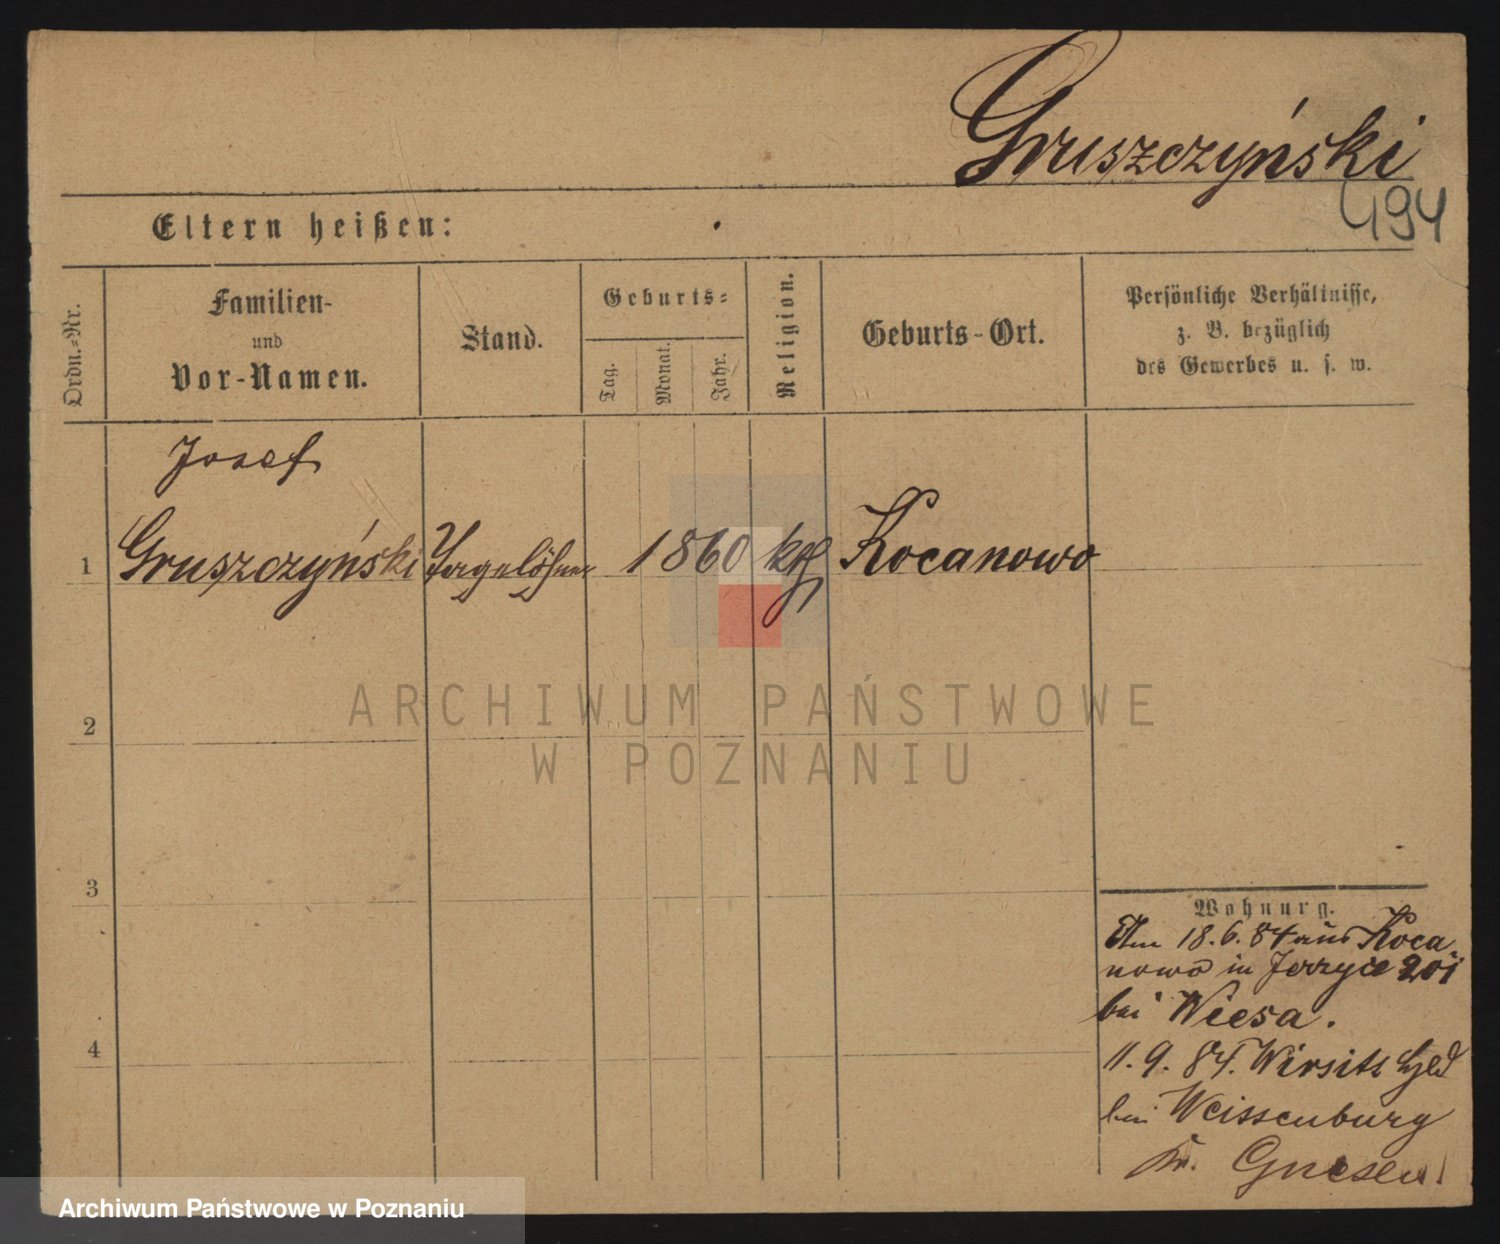 Gruszczyński
494
Eltern heißen:
Ordn.=Nr.
Familien-
und
Vor-Namen.
Stand.
Geburts=
Tag.
Monat.
Jahr.
Religion.
Geburts-Ort.
Persönliche Verhältnisse,
z. B. bezüglich
des Gewerbes u. s. w.
Josef
1 Gruszczyński Tagelöhner 1860 kth Kocanowo
2
3
4
Wohnung.
Am 18.6.84 aus Koca
nowo in Jerzyce 201
bei Weesa.
11.9.84. Wirsitz
bei Weissenburg
Kr. Gnesen
ARCHIWUM PAŃSTWOWE
W POZNANIU
Archiwum Państwowe w Poznaniu